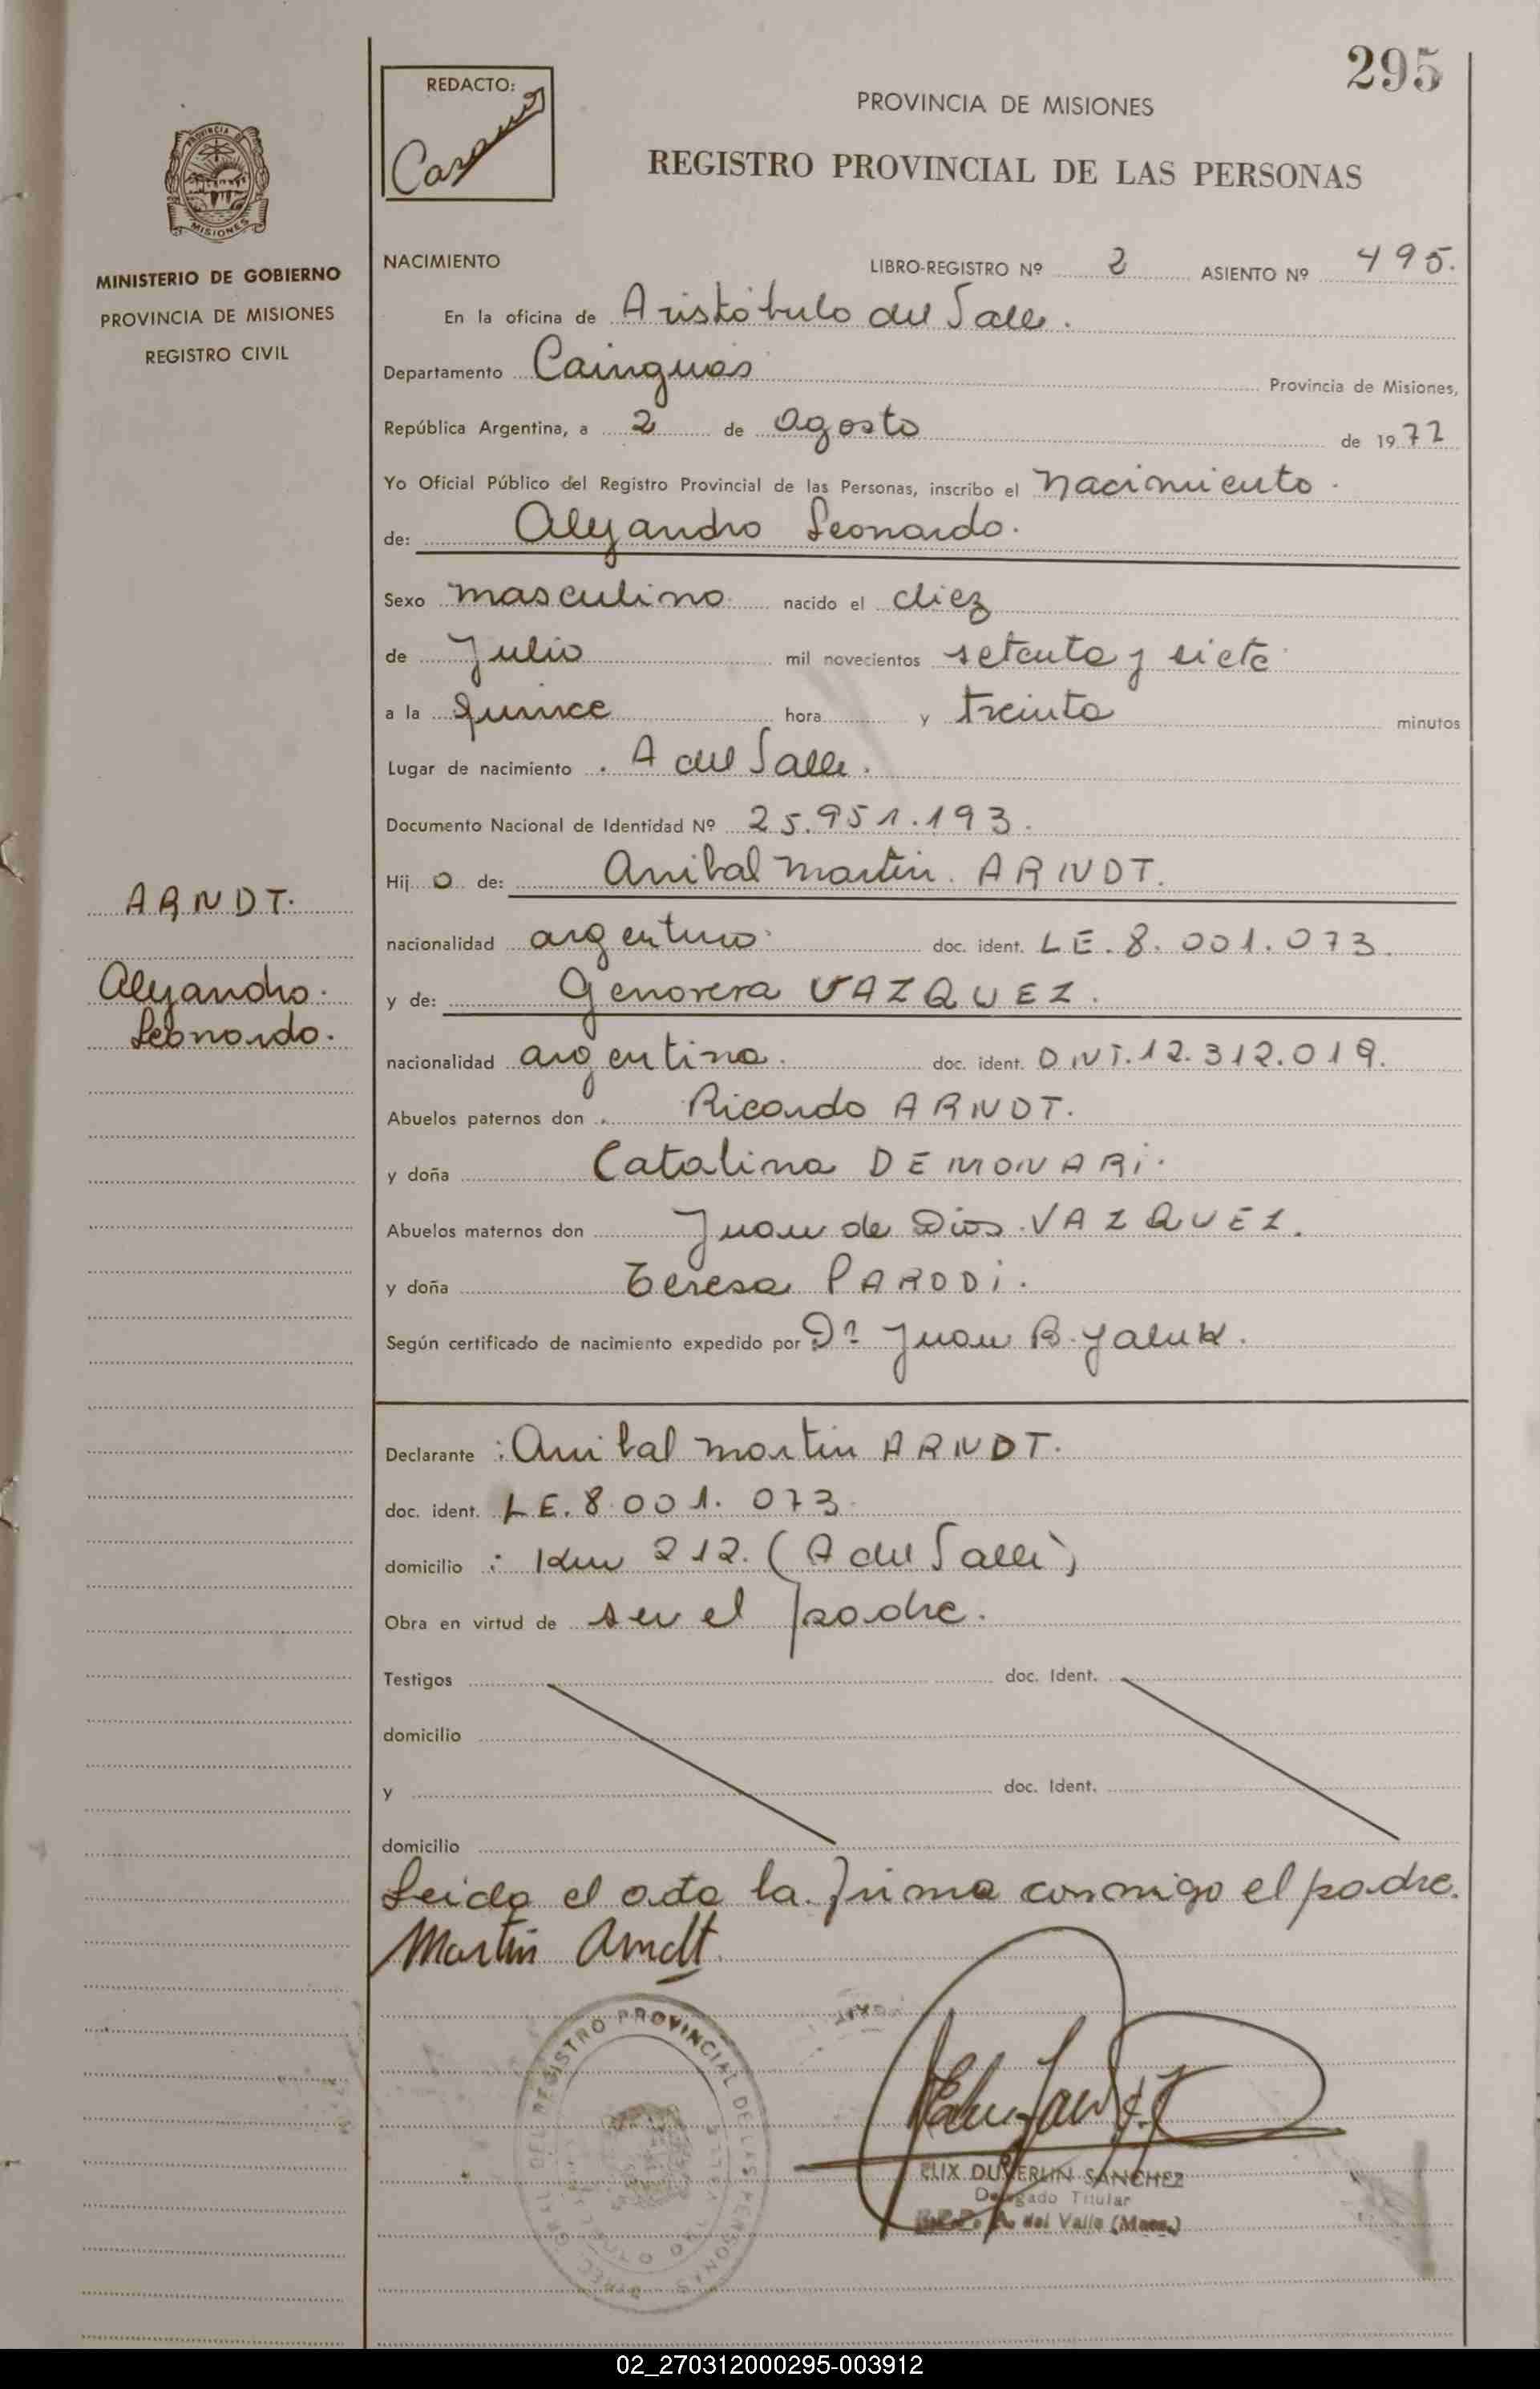 295
REDACTO:
PROVINCIA DE MISIONES
REGISTRO PROVINCIAL DE LAS PERSONAS
PROVINCIA DE
MISIONES
MINISTERIO DE GOBIERNO
PROVINCIA DE MISIONES
REGISTRO CIVIL
NACIMIENTO LIBRO-REGISTRO Nº 2 ASIENTO Nº 495.
En la oficina de Aristóbulo del Valle.
Departamento Cainguas Provincia de Misiones,
República Argentina, a 2 de agosto de 1977
Yo Oficial Público del Registro Provincial de las Personas, inscribo el nacimiento.
de: Alejandro Leonardo.
Sexo masculino nacido el diez
de Julio mil novecientos setenta y siete
a la quince hora y treinta minutos
Lugar de nacimiento . A del Valle.
Documento Nacional de Identidad Nº 25.951.193.
Hij o de: Anibal Martin. ARNDT.
ARNDT.
nacionalidad argentino. doc. ident. LE. 8. 001. 073.
Alejandro.
Leonardo.
y de: Genoveva VAZQUEZ.
nacionalidad argentina. doc. ident. DNI. 12. 312. 019.
Abuelos paternos don . Ricardo ARNDT.
y doña Catalina DEMONARi.
Abuelos maternos don Juan de Dios VAZQUEZ.
y doña Teresa PARODi.
Según certificado de nacimiento expedido por Dº Juan B. Yaluk.
Declarante : Anibal Martin ARNDT.
doc. ident. LE. 8. 001. 073.
domicilio : Km 212. (A del Valle)
Obra en virtud de ser el padre.
Testigos doc. Ident.
domicilio
y doc. Ident.
domicilio
Leida el acta la firma conmigo el padre.
Martin Arndt
DIREC. GRAL. DEL REGISTRO PROVINCIAL DE LAS PERSONAS
ELIX DUVERLIN SANCHEZ
Delegado Titular
A. del Valle (Mnes.)
02_270312000295-003912